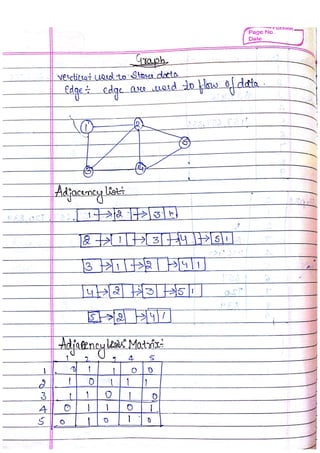 Page No.
Date
Graph
vertices used to store data
Edge ÷ edge are used to flow of data.
1 2
5
3 4
Adjacency list÷
1 → 2 → 3
2 → 1 → 3 → 4 → 5
3 → 1 → 2 → 4
4 → 2 → 3 → 5
5 → 2 → 4
Adjacency Matrix÷
1 2 3 4 5
1 0 1 1 0 0
2 1 0 1 1 1
3 1 1 0 1 0
4 0 1 1 0 1
5 0 1 0 1 0